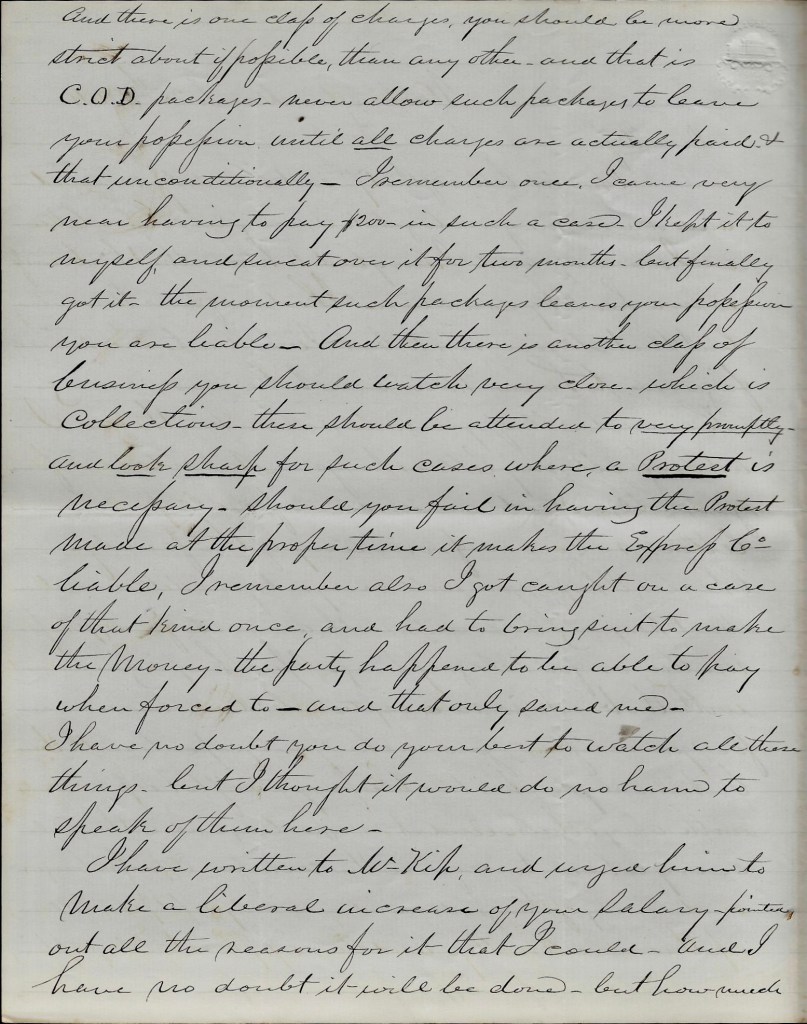 And there is one class of charges, you should be more
strict about if possible, than any other - and that is
C.O.D. packages - never allow such packages to leave
your possession until all charges are actually paid - &
that unconditionally - I remember once, I came very
near having to pay $200 - in such a case - I kept it to
myself, and sweat over it for two months - but finally
got it - the moment such packages leaves your possession
you are liable - And then there is another class of
business you should watch very close - which is
Collections - these should be attended to very promptly -
and look sharp for such cases where, a Protest is
necessary - should you fail in having the Protest
made at the proper time it makes the Express Co
liable, I remember also I got caught on a case
of that kind once, and had to bring suit to make
the Money - the party happened to be able to pay
when forced to - and that only saved me -
I have no doubt you do your best to watch all these
things - but I thought it would do no harm to
speak of them here -
I have written to Mr Kip, and urged him to
make a liberal increase of your Salary - pointed
out all the reasons for it that I could - and I
have no doubt it will be done - but how much